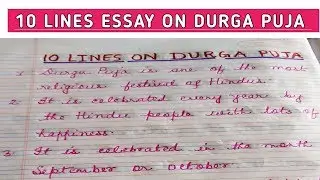 10 LINES ESSAY ON DURGA PUJA
10 LINES ON DURGA PUJA
1. Durga Puja is one of the most
religious festival of Hindus.
2. It is celebrated every year by
the Hindu people with lots of
happiness.
3. It is celebrated in the month
September or October.